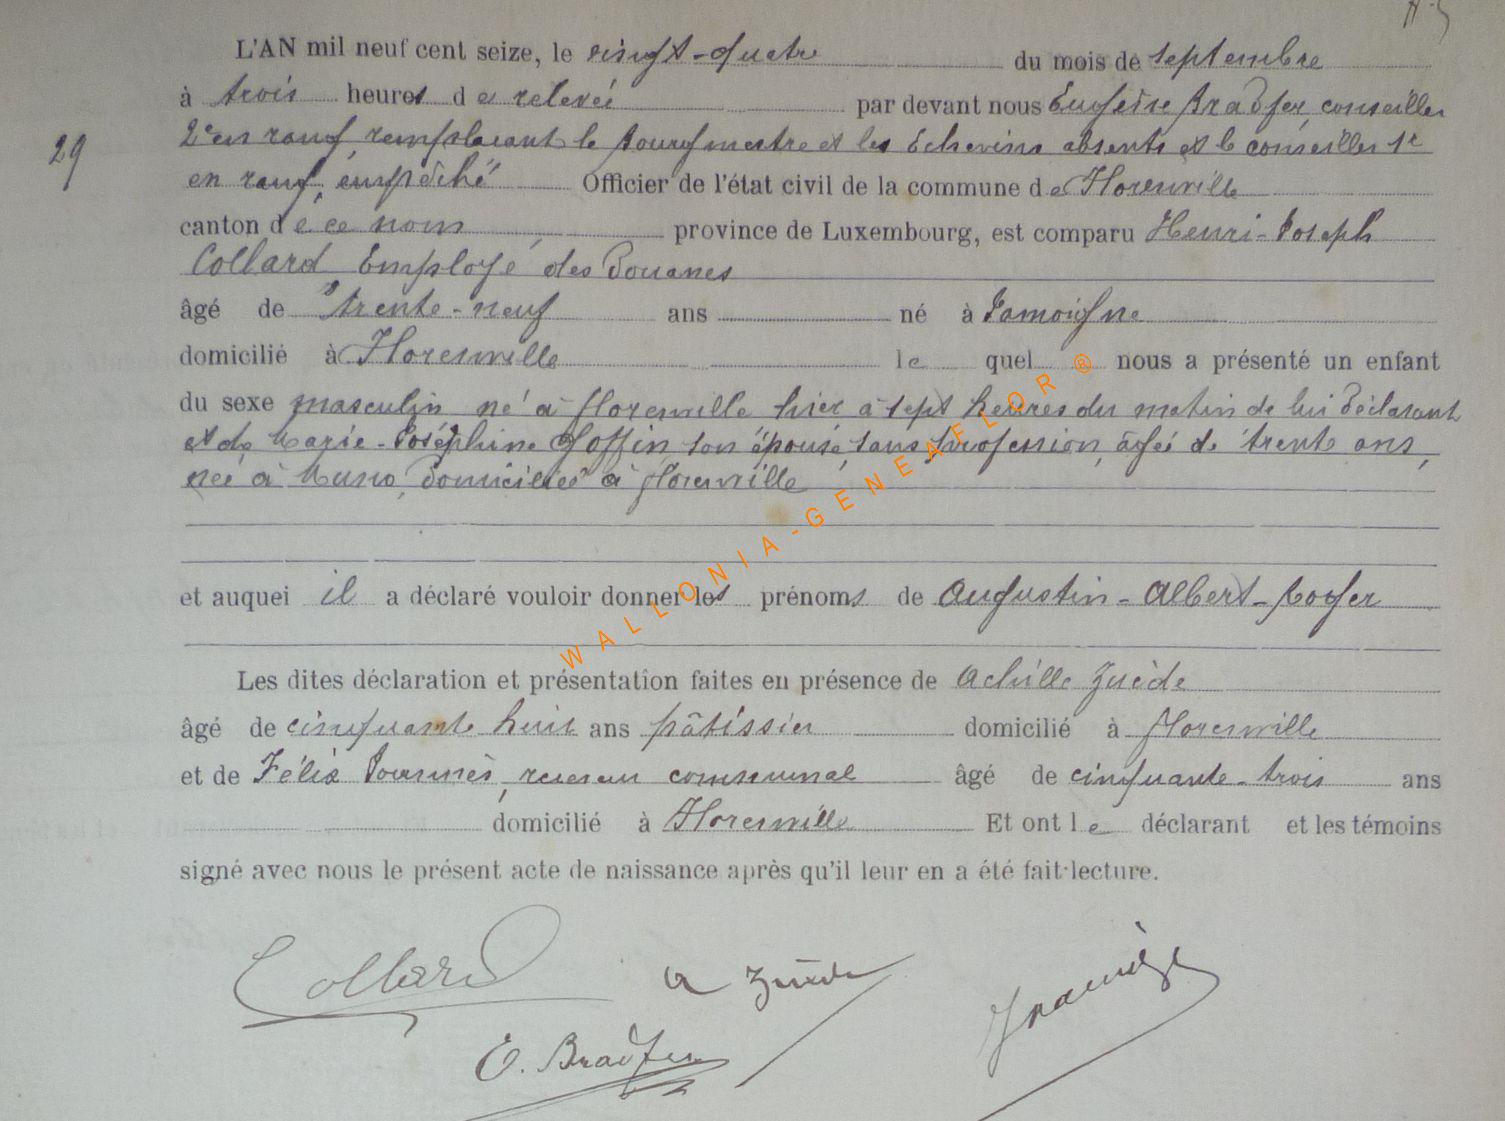 L'AN mil neuf cent seize, le vingt-quatre du mois de septembre
à trois heures de relevée par devant nous Eugène Bradfer, conseiller
29
2e en rang, remplaçant le bourgmestre et les Echevins absents et le conseiller 1r
en rang, empêché Officier de l'état civil de la commune de Florenville
canton de ce nom, province de Luxembourg, est comparu Henri-Joseph
Collard Employé des Douanes
âgé de trente-neuf ans né à Jamoigne
domicilié à Florenville lequel nous a présenté un enfant
du sexe masculin né à Florenville hier à sept heures du matin de lui déclarant
et de Marie-Joséphine Goffin son épouse, sans profession, âgée de trente ans,
née à Muno, domiciliée à Florenville
et auquel il a déclaré vouloir donner les prénoms de Augustin-Albert-Roger
Les dites déclaration et présentation faites en présence de Achille Zuède
âgé de cinquante huit ans pâtissier domicilié à Florenville
et de Félix, receveur communal âgé de cinquante-trois ans
domicilié à Florenville Et ont le déclarant et les témoins
signé avec nous le présent acte de naissance après qu'il leur en a été fait lecture.
Collard A Zuède
E. Bradfer
WALLONIA-GENEAFLOR®